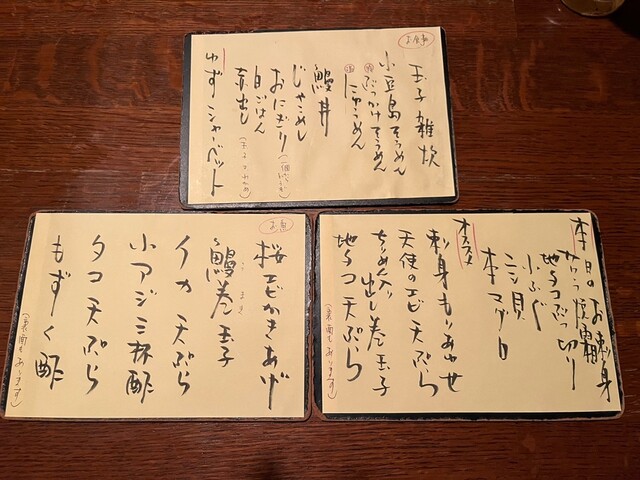 お食事
玉子雑炊
小豆島そうめん
冷 ぶっかけそうめん
温 にゅうめん
鰻丼
じゃこめし
おにぎり
白ごはん
赤出し
ゆずシャーベット
本日のお刺身
サワラ焼霜
地タコぶつ切り
小ふぐ
ニシ貝
本マグロ
オススメ
刺身もりあわせ
天使のエビ天ぷら
ちりめん入り出し巻玉子
地タコ天ぷら
(裏面もあります)
お魚
桜エビかきあげ
鰻巻玉子
うまき
イカ天ぷら
小アジ三杯酢
タコ天ぷら
もずく酢
(裏面もあります)